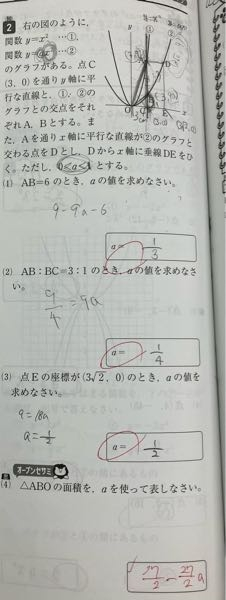 2 右の図のように，
関数 y=x² …①
関数 y=ax² …②
のグラフがある。点C
(3, 0)を通りy軸に平
行な直線と，①，②の
グラフとの交点をそれ
ぞれA，Bとする。ま
た，Aを通りx軸に平行な直線が②のグラフと
交わる点をDとし，Dからx軸に垂線DEをひ
く。ただし，0<a<1とする。
(1) AB=6のとき，aの値を求めなさい。
9-9a=6
a= 1/3
(2) AB：BC=3：1のとき，aの値を求めなさ
い。
9/4=9a
a= 1/4
(3) 点Eの座標が(3√2, 0)のとき，aの値を
求めなさい。
9=18a
a=1/2
a= 1/2
オープンセサミ
(4) △ABOの面積を，aを使って表しなさい。
27/2-27/2a